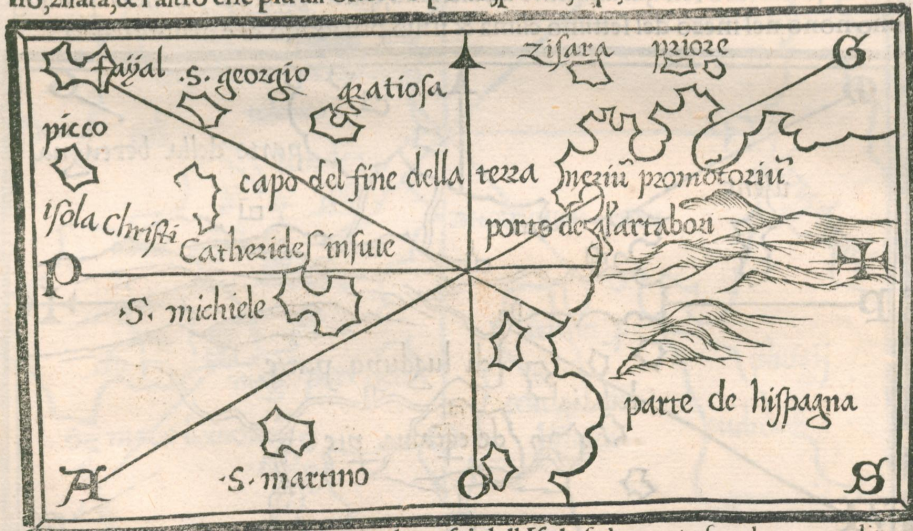 Fayal
.S. georgio
gratiosa
zisara
priore
G
picco
capo del fine della terra
neriū promōtoriū
isola Christi
porto de glartabori
Catherides insule
P
.S. michiele
parte de hispagna
.S. martino
A
O
S